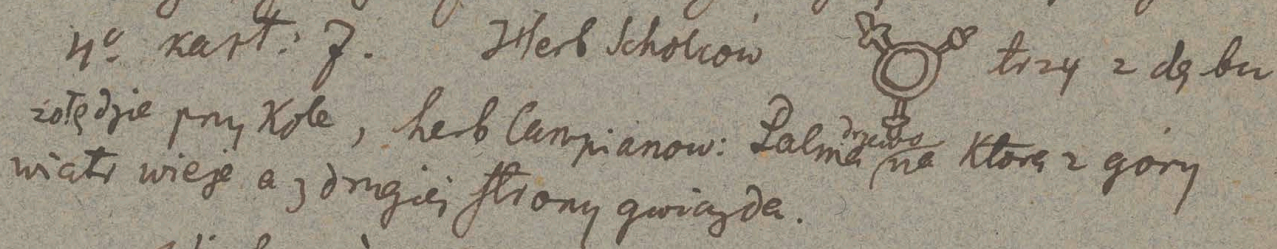 4º kart: 7. Herb Scholców trzy z dębu
żołędzie przy Kole, herb Campianow: Palma drzewo na ktorą z góry
wiatr wieje a z drugiéj strony gwiazda.